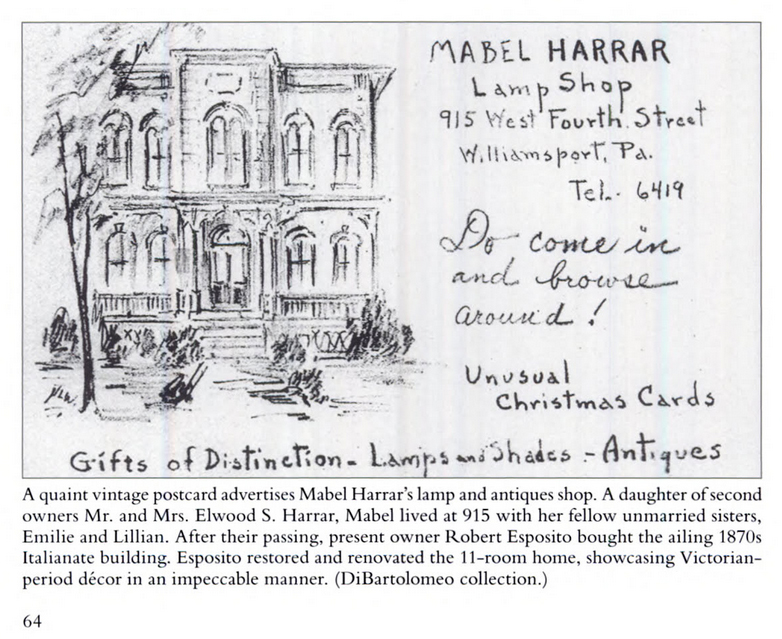 MABEL HARRAR
Lamp Shop
915 West Fourth Street
Williamsport, Pa.
Tel. 6419
Do come in
and browse
around!
Unusual
Christmas Cards
Gifts of Distinction - Lamps and Shades - Antiques
A quaint vintage postcard advertises Mabel Harrar's lamp and antiques shop. A daughter of second
owners Mr. and Mrs. Elwood S. Harrar, Mabel lived at 915 with her fellow unmarried sisters,
Emilie and Lillian. After their passing, present owner Robert Esposito bought the ailing 1870s
Italianate building. Esposito restored and renovated the 11-room home, showcasing Victorian-
period décor in an impeccable manner. (DiBartolomeo collection.)
64